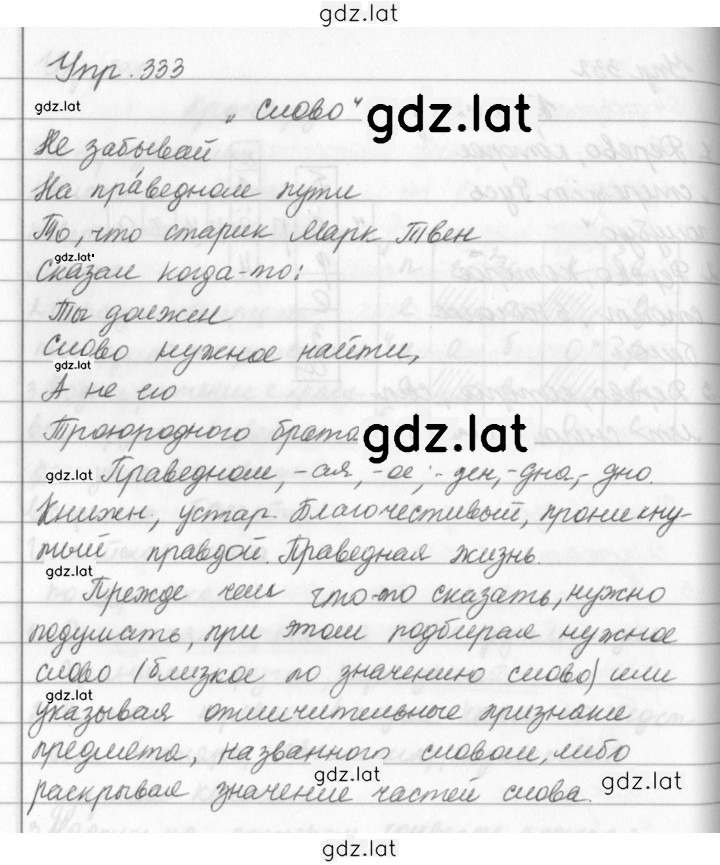 gdz.lat
Упр. 333
gdz.lat
„Слово“ gdz.lat
Не забывай
На пра́ведном пути
То, что старик Марк Твен
gdz.lat
Сказал когда-то:
Ты должен
Слово нужное найти,
gdz.lat
А не его
Троюродного брата gdz.lat
gdz.lat Праведном, -ая, -ое; -ден, -дна, -дно.
Книжн, устар. Благочестивый, проникну-
тый правдой. Праведная жизнь.
gdz.lat
Прежде чем что-то сказать, нужно
подумать, при этом подбирая нужное
слово (близкое по значению слово) или
gdz.lat
указывая отличительные признаки
предмета, названного словом, либо
gdz.lat gdz.lat
раскрывая значение частей слова.
gdz.lat